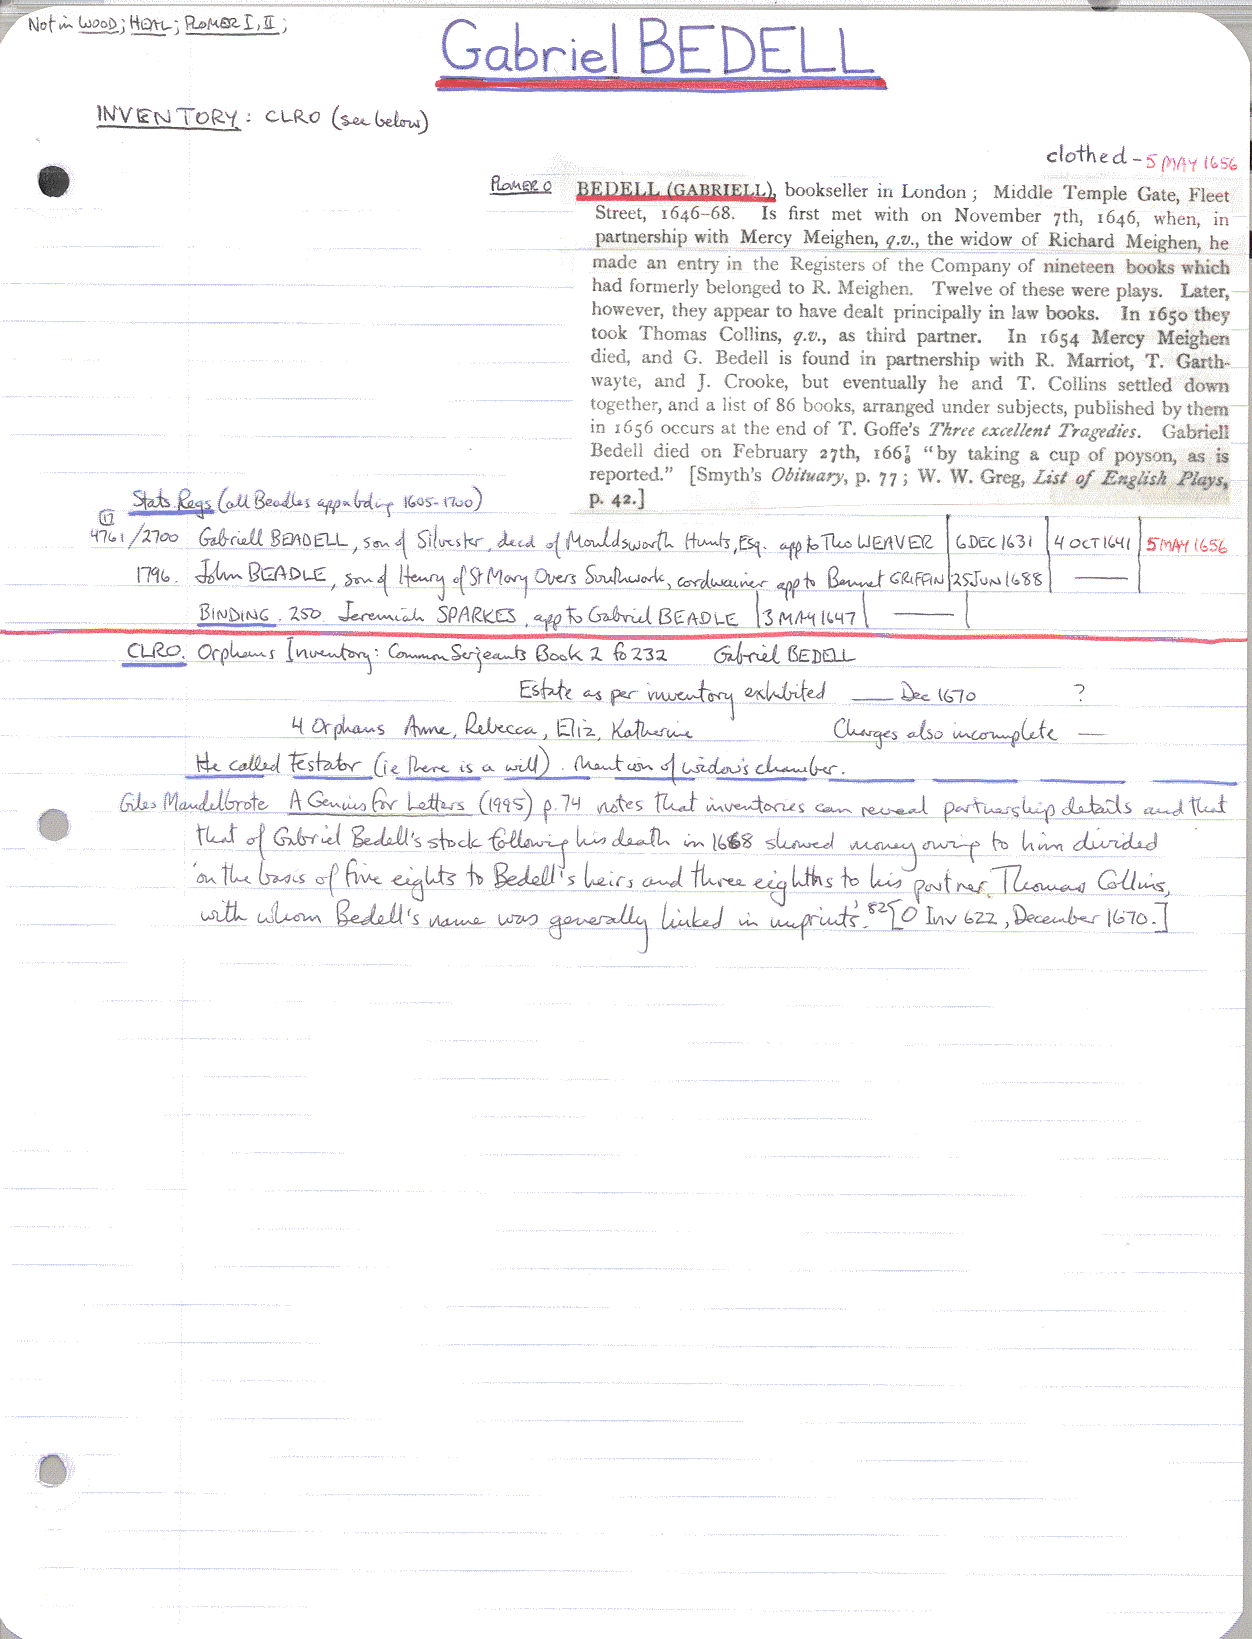 Not in WOOD; HEAL; PLOMER I, II;
Gabriel BEDELL
INVENTORY: CLRO (see below)
clothed - 5 MAY 1656
PLOMER O
BEDELL (GABRIELL), bookseller in London; Middle Temple Gate, Fleet
Street, 1646–68. Is first met with on November 7th, 1646, when, in
partnership with Mercy Meighen, q.v., the widow of Richard Meighen, he
made an entry in the Registers of the Company of nineteen books which
had formerly belonged to R. Meighen. Twelve of these were plays. Later,
however, they appear to have dealt principally in law books. In 1650 they
took Thomas Collins, q.v., as third partner. In 1654 Mercy Meighen
died, and G. Bedell is found in partnership with R. Marriot, T. Garth-
wayte, and J. Crooke, but eventually he and T. Collins settled down
together, and a list of 86 books, arranged under subjects, published by them
in 1656 occurs at the end of T. Goffe's Three excellent Tragedies. Gabriell
Bedell died on February 27th, 166⅞ "by taking a cup of poyson, as is
reported." [Smyth's Obituary, p. 77; W. W. Greg, List of English Plays,
p. 42.]
Stats Regs (all Beadles app 1605-1700)
4761/2700 Gabriell BEADELL, son of Silvester, decd of Mouldsworth Hunts, Esq. app to Tho WEAVER | 6 DEC 1631 | 4 OCT 1641 | 5 MAY 1656
1796. John BEADLE, son of Henry of St Mary Overs Southwork, cordwainer app to Bennet GRIFFIN | 25 JUN 1688 | —
BINDING. 250. Jeremiah SPARKES, app to Gabriel BEADLE | 3 MAY 1647 | —
CLRO. Orphans Inventory: Common Serjeants Book 2 fo 232 Gabriel BEDELL
Estate as per inventory exhibited — Dec 1670 ?
4 Orphans Anne, Rebecca, Eliz, Katherine Charges also incomplete —
He called Testator (ie there is a will). Mention of widow's chamber.
Giles Mandelbrote A Genius for Letters (1995) p.74 notes that inventories can reveal partnership details and that
that of Gabriel Bedell's stock following his death in 1668 showed money owing to him divided
'on the basis of five eights to Bedell's heirs and three eighths to his partner, Thomas Collins,
with whom Bedell's name was generally linked in imprints'.82 [O Inv 622, December 1670.]